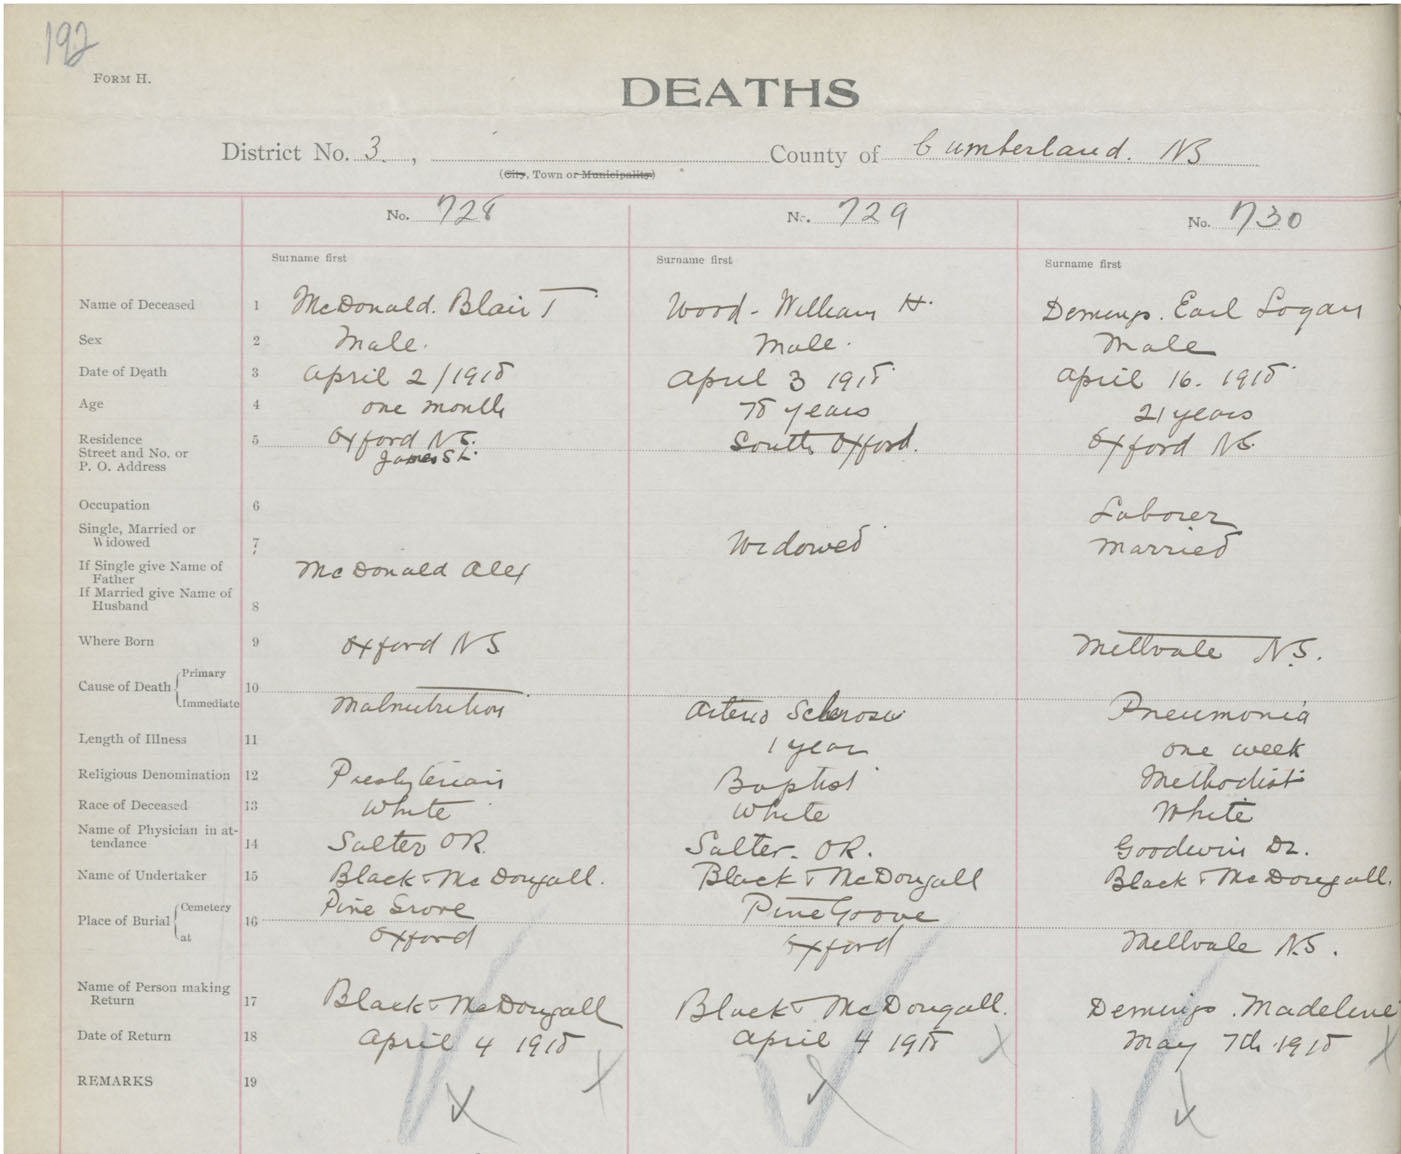 192
FORM H.
DEATHS
District No. 3. , County of Cumberland. NS
(City, Town or Municipality)
No. 728 No. 729 No. 730
Surname first Surname first Surname first
Name of Deceased 1 McDonald. Blair T Wood - William H. Demings. Earl Logan
Sex 2 Male. Male. Male
Date of Death 3 April 2/1918 April 3 1918 April 16. 1918
Age 4 one month 78 years 21 years
Residence 5 Oxford NS. South Oxford. Oxford NS.
Street and No. or James St.
P. O. Address
Occupation 6 Laborer
Single, Married or
Widowed 7 Widowed Married
If Single give Name of McDonald Alex
Father
If Married give Name of
Husband 8
Where Born 9 Oxford NS Millvale NS.
Primary
Cause of Death 10
Immediate Malnutrition Arterio Sclerosis Pneumonia
Length of Illness 11 1 year one week
Religious Denomination 12 Presbyterian Baptist Methodist
Race of Deceased 13 White White White
Name of Physician in at-
tendance 14 Salter DR. Salter. DR. Goodwin Dr.
Name of Undertaker 15 Black & McDougall. Black & McDougall Black & McDougall.
Cemetery Pine Grove Pine Groove
Place of Burial 16
at Oxford Oxford Millvale N.S.
Name of Person making
Return 17 Black & McDougall Black & McDougall. Demings. Madeline
Date of Return 18 April 4 1918 April 4 1918 May 7th 1918
REMARKS 19